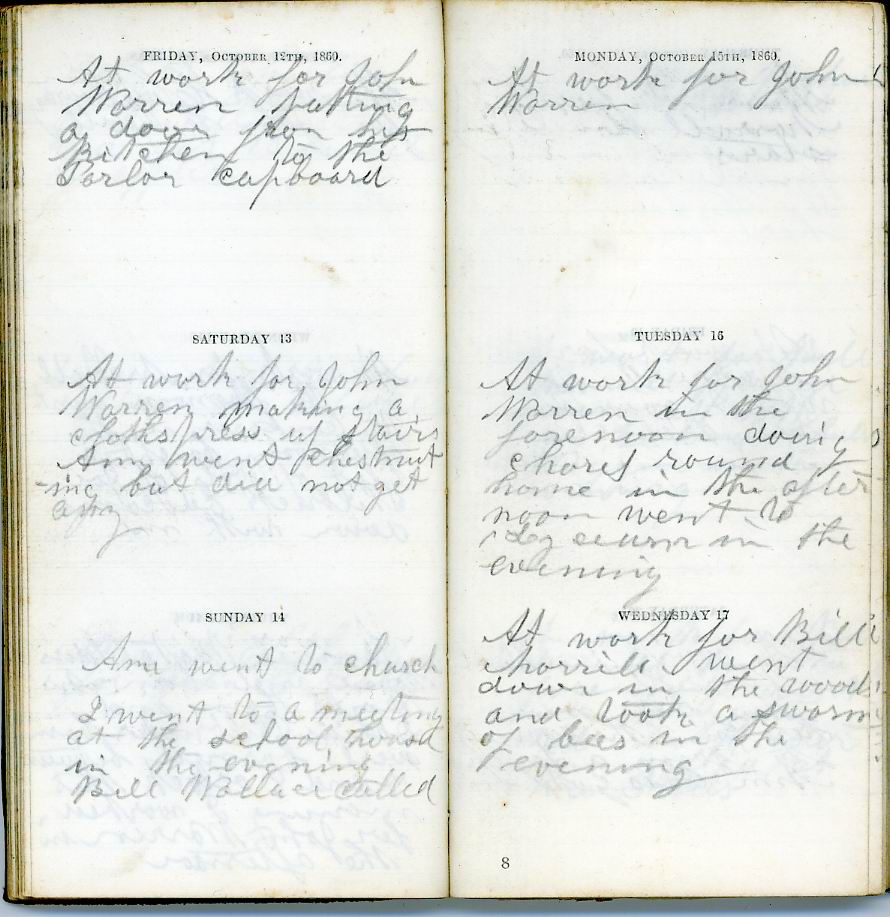 FRIDAY, OCTOBER 12TH, 1860.
At work for John
Warren putting
a door from his
Kitchen to the
Parlor cupboard
SATURDAY 13
At work for John
Warren making a
clothspress up stairs
Ann went chestnut
-ing but did not get
any
SUNDAY 14
Ann went to church
I went to a meeting
at the school house
in the evening
Bill Wallace called
MONDAY, OCTOBER 15TH, 1860.
At work for John
Warren
TUESDAY 16
At work for John
Warren in the
forenoon doing
chores round
home in the after
noon went to
in the
evening
WEDNESDAY 17
At work for Bill
went
down in the woods
and took a swarm
of bees in the
evening
8